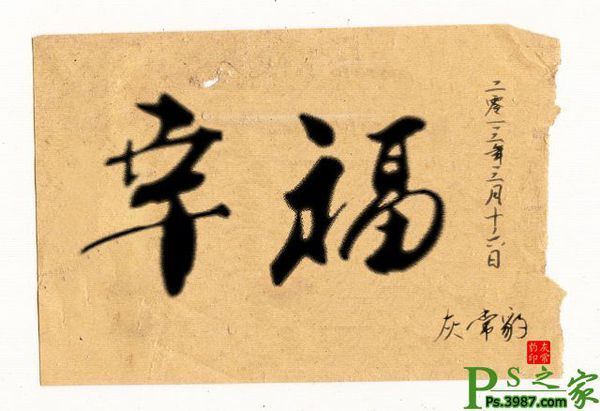 幸福
二零一三年三月十六日
灰常豹
灰常
豹印
Ps之家
Ps.3987.com